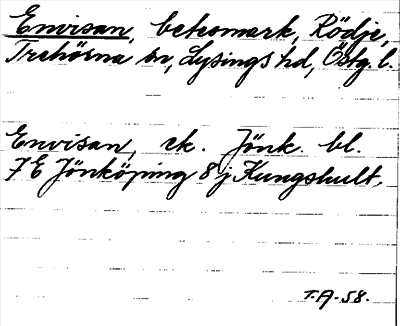 Envisan, betesmark, Rödje,
Trehörna sn, Lysings hd, Östg. l.
Envisan, ek. Jönk. bl.
7E Jönköping 8j Kungshult.
T.A-58.